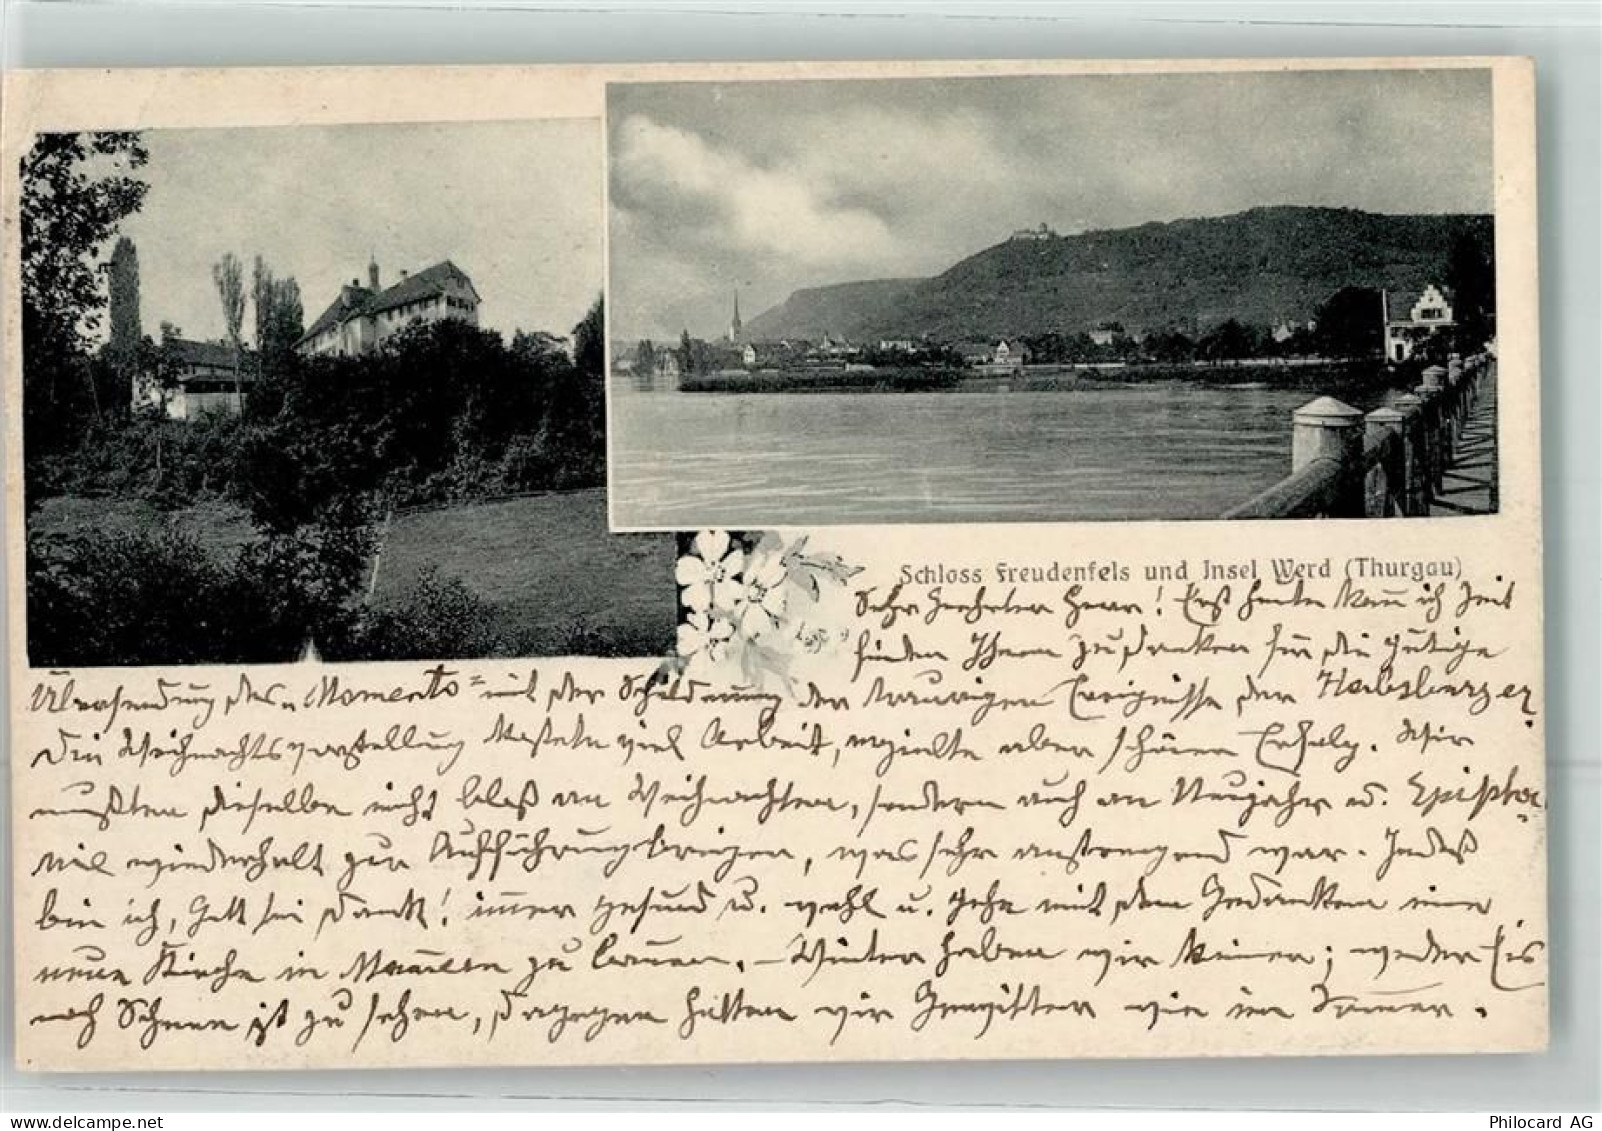 Schloss Freudenfels und Insel Werd (Thurgau)
Sehr Geehrter Herr! Erst heute kann ich Zeit
finden Ihnen zu danken für die gütige
Übersendung des „Memento" mit der Schilderung der traurigen Ereignisse der Habsburger
Die Weihnachtsvorstellung kostete viel Arbeit, erzielte aber schönen Erfolg. Wir
mußten dieselbe nicht bloß an Weihnachten, sondern auch an Neujahr u. Epipha-
nie wiederholt zur Aufführung bringen, was sehr anstrengend war. Indeß
bin ich, Gott sei Dank! immer gesund u. wohl u. gehe mit dem Gedanken eine
neue Kirche in zu bauen. – Winter haben wir keinen; weder Eis
noch Schnee ist zu sehen, dagegen hatten wir Gewitter wie im Sommer.
Philocard AG